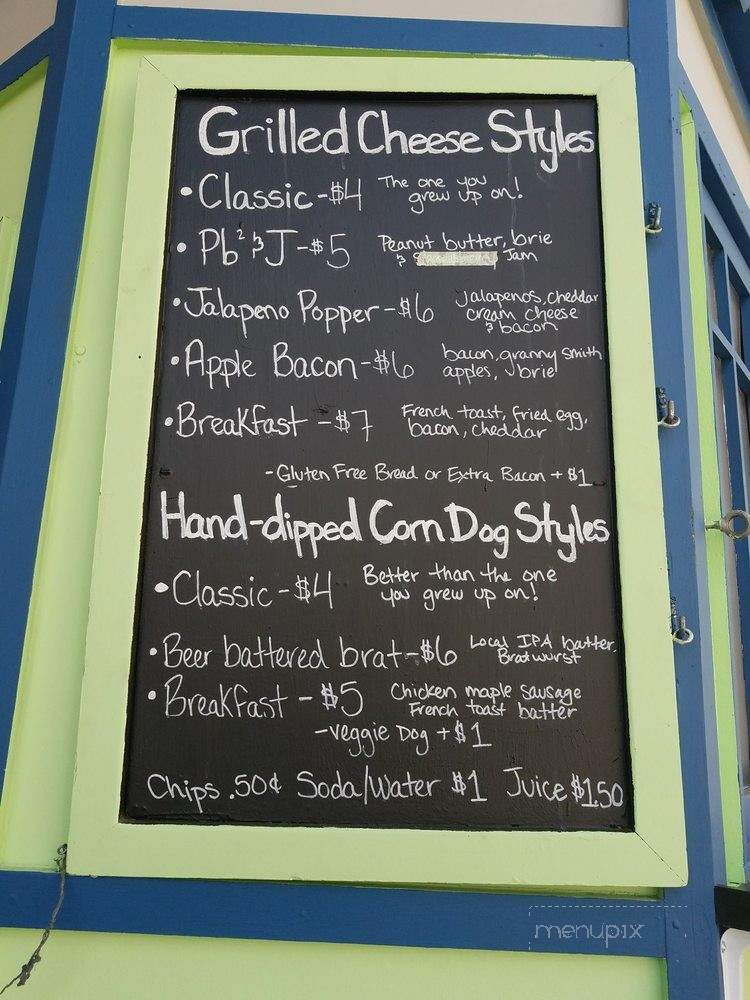 Grilled Cheese Styles
• Classic - $4 The one you
grew up on!
• Pb² & J - $5 Peanut butter, brie
& Jam
• Jalapeno Popper - $6 Jalapenos, cheddar
cream cheese
& bacon
• Apple Bacon - $6 bacon, granny smith
apples, brie
• Breakfast - $7 French toast, fried egg,
bacon, cheddar
- Gluten Free Bread or Extra Bacon + $1
Hand-dipped Corn Dog Styles
• Classic - $4 Better than the one
you grew up on!
• Beer battered brat - $6 Local IPA batter,
Bratwurst
• Breakfast - $5 Chicken maple sausage
French toast batter
- veggie Dog + $1
Chips .50¢ Soda/Water $1 Juice $1.50
menupix